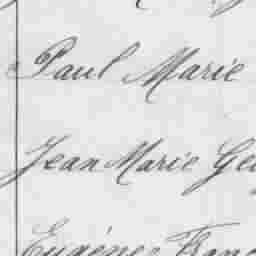 Paul Marie
Jean Marie Geo
Eugénes Franc